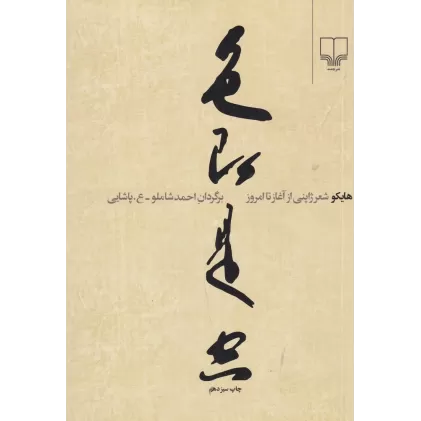 色
即
是
空
نشرچشمه
هایکو شعر ژاپنی از آغاز تا امروز
برگردانِ احمد شاملو ـ ع. پاشایی
چاپ سیزدهم